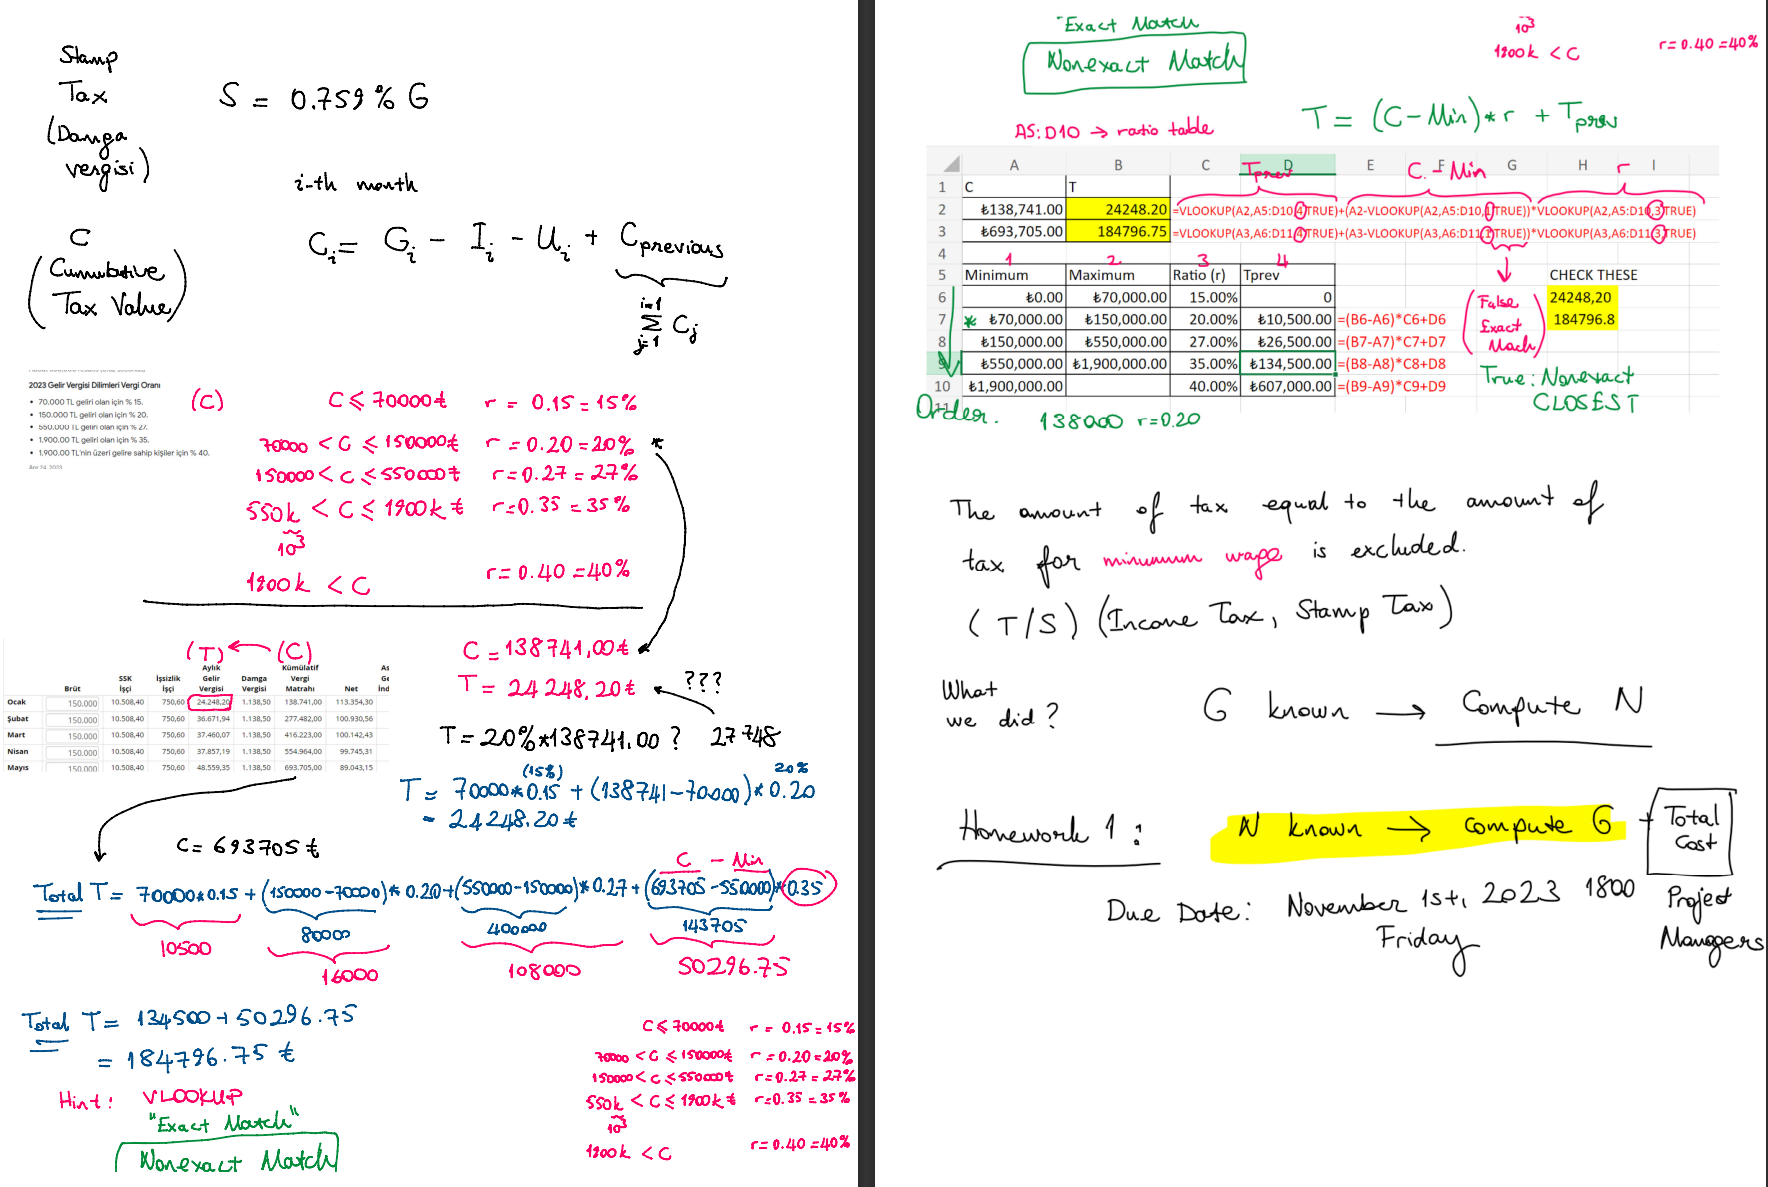 Stamp
Tax
(Damga
vergisi)
S = 0.759 % G
i-th month
C
(Cumulative
Tax Value)
Ci = Gi - Ii - Ui + Cprevious
i=1
Σ Cj
j=1
2023 Gelir Vergisi Dilimleri Vergi Oranı
• 70.000 TL geliri olan için % 15.
• 150.000 TL geliri olan için % 20.
• 550.000 TL geliri olan için % 27.
• 1.900.00 TL geliri olan için % 35.
• 1.900.00 TL'nin üzeri gelire sahip kişiler için % 40.
Apr 24, 2023
(C)
C ≤ 70000₺ r = 0.15 = 15%
70000 < C ≤ 150000₺ r = 0.20 = 20% *
150000 < C ≤ 550000₺ r = 0.27 = 27%
550k < C ≤ 1900k ₺ r = 0.35 = 35%
10³
1900k < C r = 0.40 = 40%
(T) ← (C)
Brüt SSK İşçi İşsizlik İşçi Aylık Gelir Vergisi Damga Vergisi Kümülatif Vergi Matrahı Net
Ocak 150.000 10.508,40 750,60 24.248,20 1.138,50 138.741,00 113.354,30
Şubat 150.000 10.508,40 750,60 36.671,94 1.138,50 277.482,00 100.930,56
Mart 150.000 10.508,40 750,60 37.460,07 1.138,50 416.223,00 100.142,43
Nisan 150.000 10.508,40 750,60 37.857,19 1.138,50 554.964,00 99.745,31
Mayıs 150.000 10.508,40 750,60 48.559,35 1.138,50 693.705,00 89.043,15
C = 138741,00₺
T = 24248,20₺ ???
T = 20% * 138741.00 ? 27748
(15%) 20%
T = 70000*0.15 + (138741-70000)*0.20
= 24248.20₺
C = 693705 ₺
C - Min
Total T = 70000*0.15 + (150000-70000)*0.20+(550000-150000)*0.27+(693705-550000)*0.35
80000 400000 143705
10500 16000 108000 50296.75
Total T = 134500+50296.75
= 184796.75 ₺
Hint: VLOOKUP
"Exact Match"
Nonexact Match
C ≤ 70000₺ r = 0.15 = 15%
70000 < C ≤ 150000₺ r = 0.20 = 20%
150000 < C ≤ 550000₺ r = 0.27 = 27%
550k < C ≤ 1900k ₺ r = 0.35 = 35%
10³
1900k < C r = 0.40 = 40%
"Exact Match
Nonexact Match
10³
1900k < C r = 0.40 = 40%
T = (C - Min) * r + Tprev
A5:D10 → ratio table
Tprev C - Min r
A B C D E F G H I
1 C T
2 ₺138,741.00 24248.20 =VLOOKUP(A2,A5:D10,4,TRUE)+(A2-VLOOKUP(A2,A5:D10,1,TRUE))*VLOOKUP(A2,A5:D10,3,TRUE)
3 ₺693,705.00 184796.75 =VLOOKUP(A3,A6:D11,4,TRUE)+(A3-VLOOKUP(A3,A6:D11,1,TRUE))*VLOOKUP(A3,A6:D11,3,TRUE)
4
1 2 3 4
5 Minimum Maximum Ratio (r) Tprev CHECK THESE
6 ₺0.00 ₺70,000.00 15.00% 0 24248,20
7 * ₺70,000.00 ₺150,000.00 20.00% ₺10,500.00 =(B6-A6)*C6+D6 184796.8
8 ₺150,000.00 ₺550,000.00 27.00% ₺26,500.00 =(B7-A7)*C7+D7
9 ₺550,000.00 ₺1,900,000.00 35.00% ₺134,500.00 =(B8-A8)*C8+D8
10 ₺1,900,000.00 40.00% ₺607,000.00 =(B9-A9)*C9+D9
11
(False
Exact
Mach)
True: Nonexact
CLOSEST
Order. 138000 r=0.20
The amount of tax equal to the amount of
tax for minumum wage is excluded.
(T/S) (Income Tax, Stamp Tax)
What
we did?
G known → Compute N
Homework 1:
N known → compute G + Total
Cost
Due Date: November 1st, 2023 1800
Friday
Project
Managers